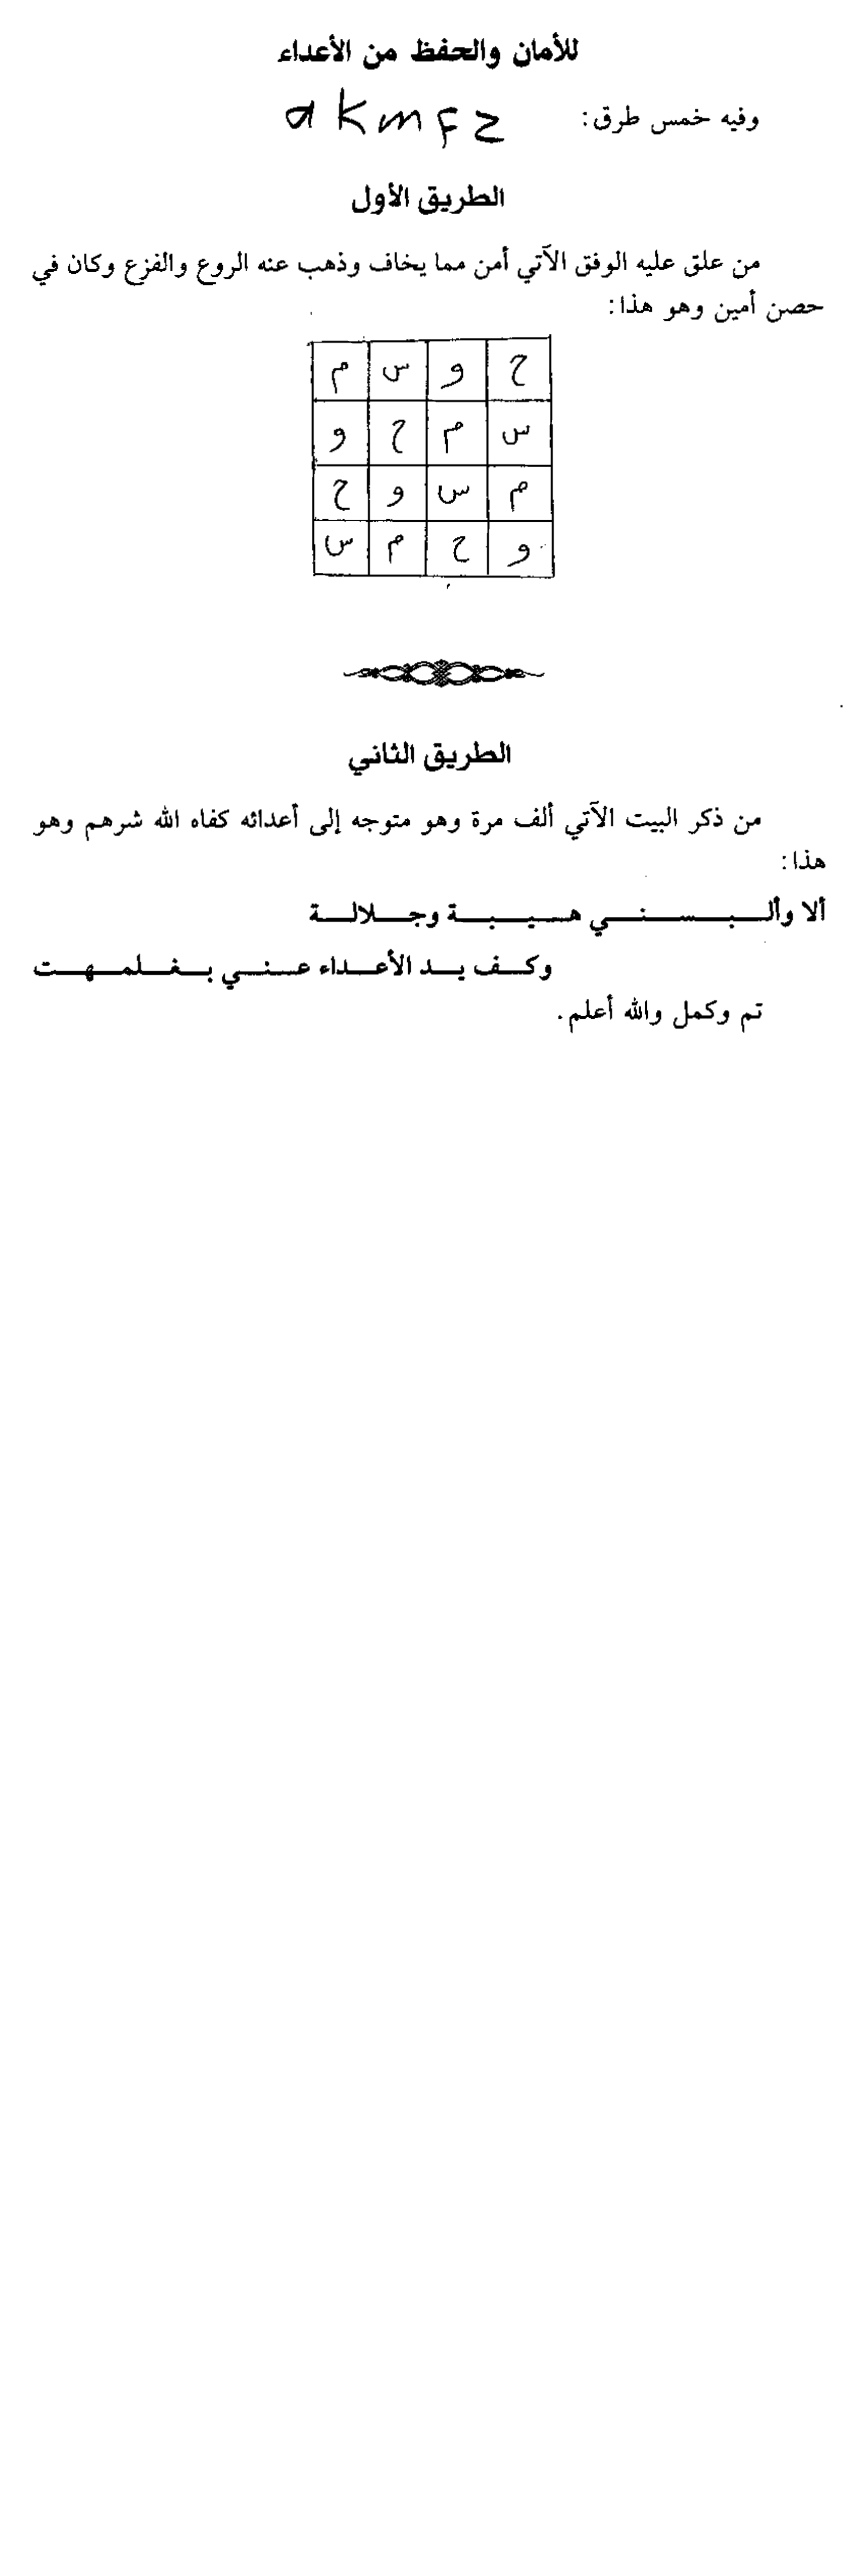 للأمان والحفظ من الأعداء
وفيه خمس طرق: akmfz
الطريق الأول
من علق عليه الوفق الآتي أمن مما يخاف وذهب عنه الروع والفزع وكان في
حصن أمين وهو هذا:
ح و س م
س م ح و
م س و ح
و ح م س
الطريق الثاني
من ذكر البيت الآتي ألف مرة وهو متوجه إلى أعدائه كفاه الله شرهم وهو
هذا:
ألا وألـبـسـنـي هـيـبـة وجـلالـة
وكـف يـد الأعـداء عـنـي بـغـلمـهـت
تم وكمل والله أعلم.